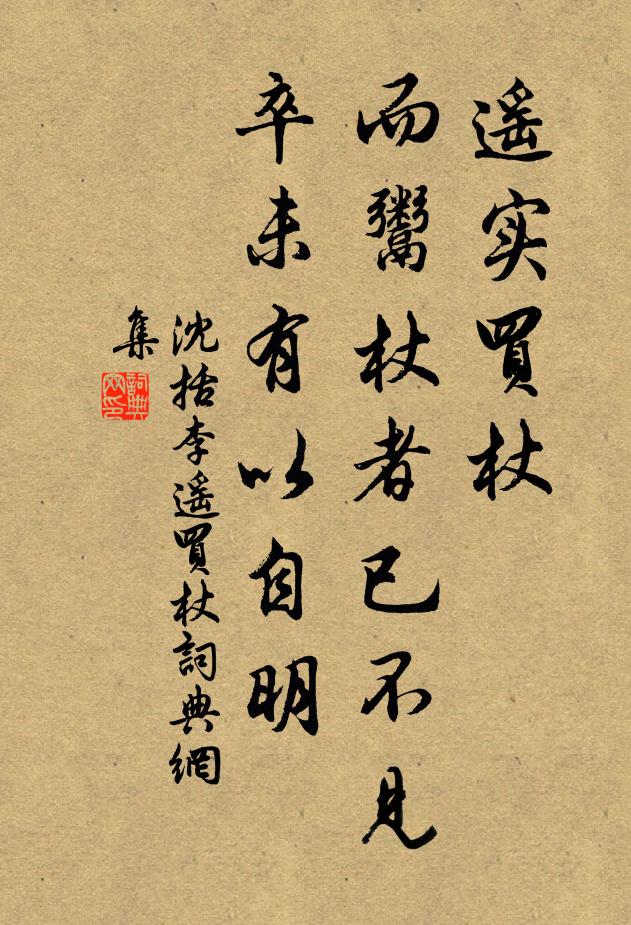 遥实買杖
而鬻杖者已不見
卒未有以自明
沈括李遥買杖詞典網
集
詞典網印